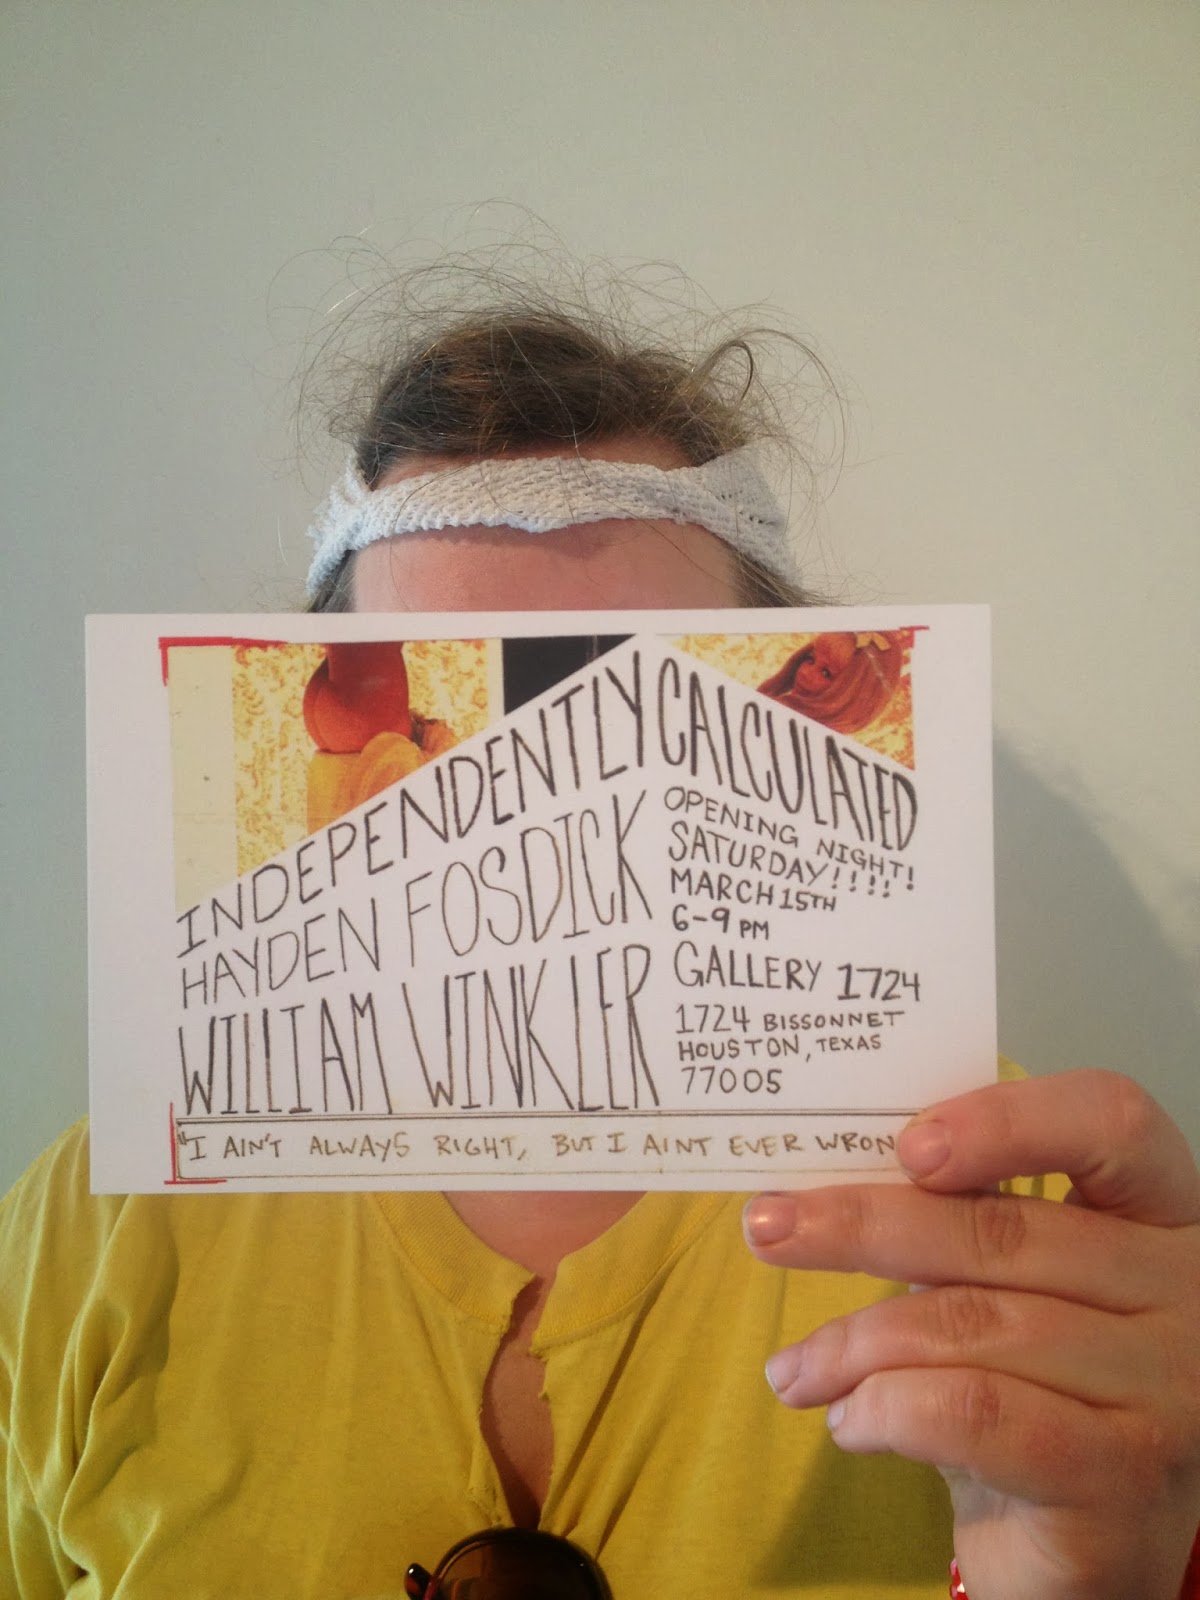 INDEPENDENTLY CALCULATED
HAYDEN FOSDICK
WILLIAM WINKLER
OPENING NIGHT!
SATURDAY!!!!
MARCH 15TH
6-9 PM
GALLERY 1724
1724 BISSONNET
HOUSTON, TEXAS
77005
"I AIN'T ALWAYS RIGHT, BUT I AINT EVER WRON